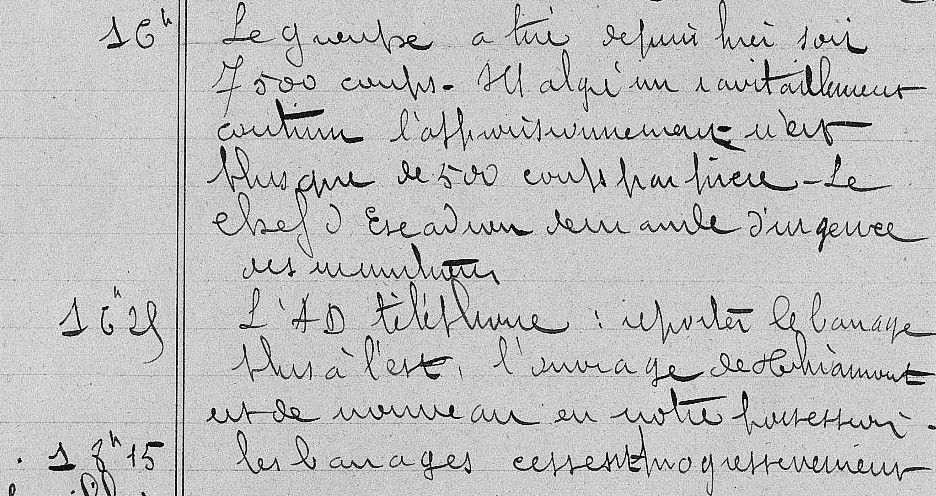 16h Le groupe a tiré depuis hier soir
7500 coups - Malgré un ravitaillement
continu l'approvisionnement n'est
plus que de 500 coups par pièce - Le
Chef d'Escadron demande d'urgence
des munitions
16h25 L'AD téléphone : reporter le barrage
plus à l'est, l'ouvrage de Thiaumont
est de nouveau en notre possession -
17h15 les barrages cessent progressivement